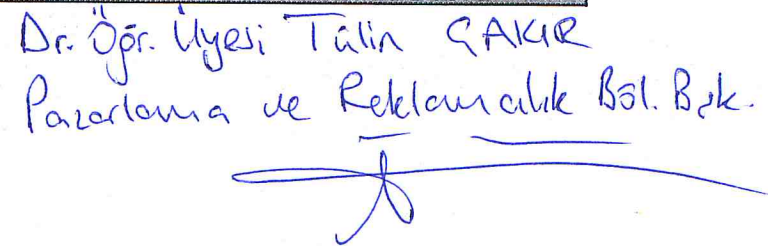 Dr. Öğr. Üyesi Tülin ÇAKIR
Pazarlama ve Reklamcılık Böl. Bşk.